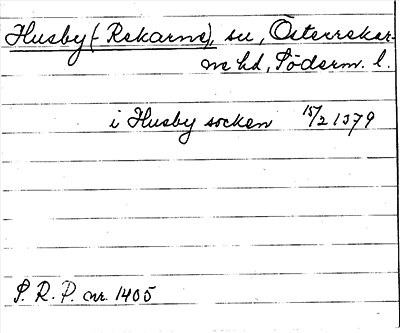 Husby (Rekarne), sn, Österrekar-
ne hd, Söderm. l.
i Husby socken 15/2 1379
S. R. P. nr. 1405